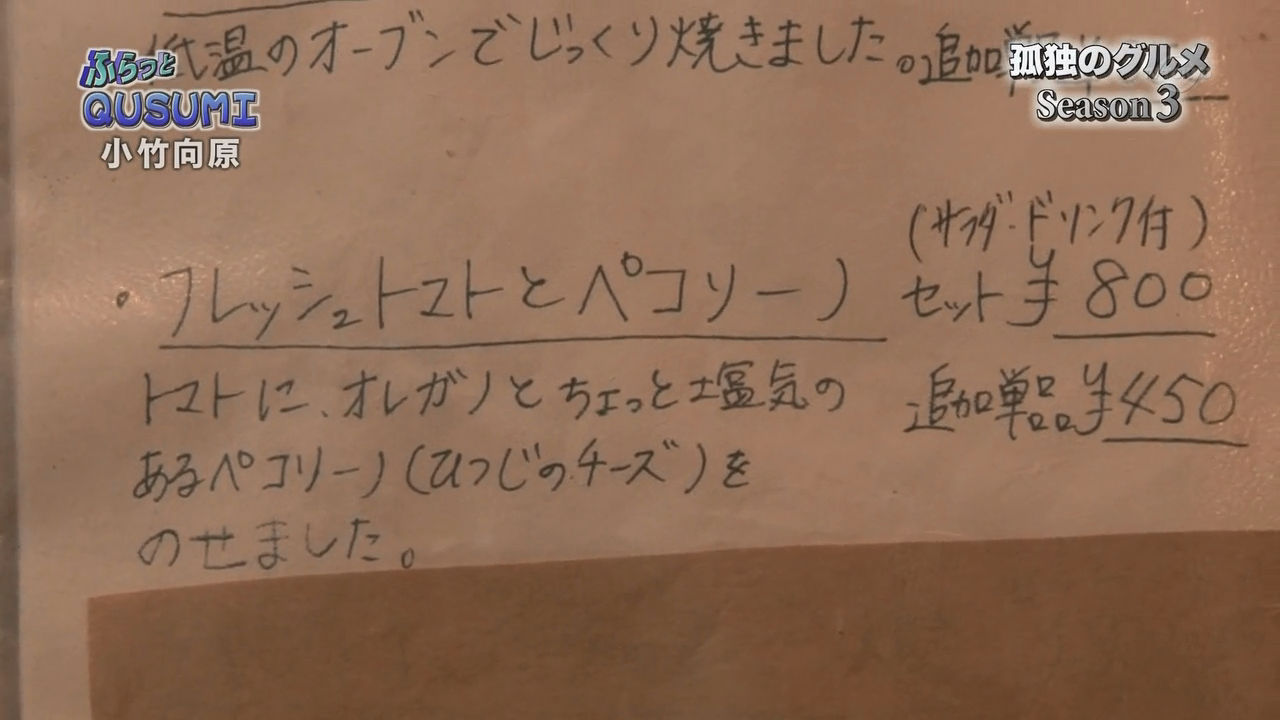 ふらっと
QUSUMI
小竹向原
孤独のグルメ
Season3
低温のオーブンでじっくり焼きました。追加単
(サラダ・ドリンク付)
・フレッシュトマトとペコリーノ セット¥800
トマトに、オレガノとちょっと塩気の 追加単品¥450
あるペコリーノ(ひつじのチーズ)を
のせました。